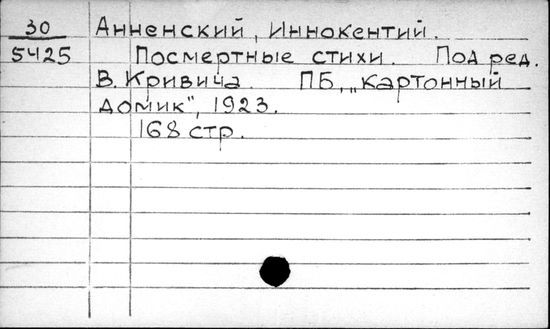 30 Анненский, Иннокентий.
5425 Посмертные стихи. Под ред.
В. Кривича. ПБ, „Картонный
домик", 1923.
168 стр.